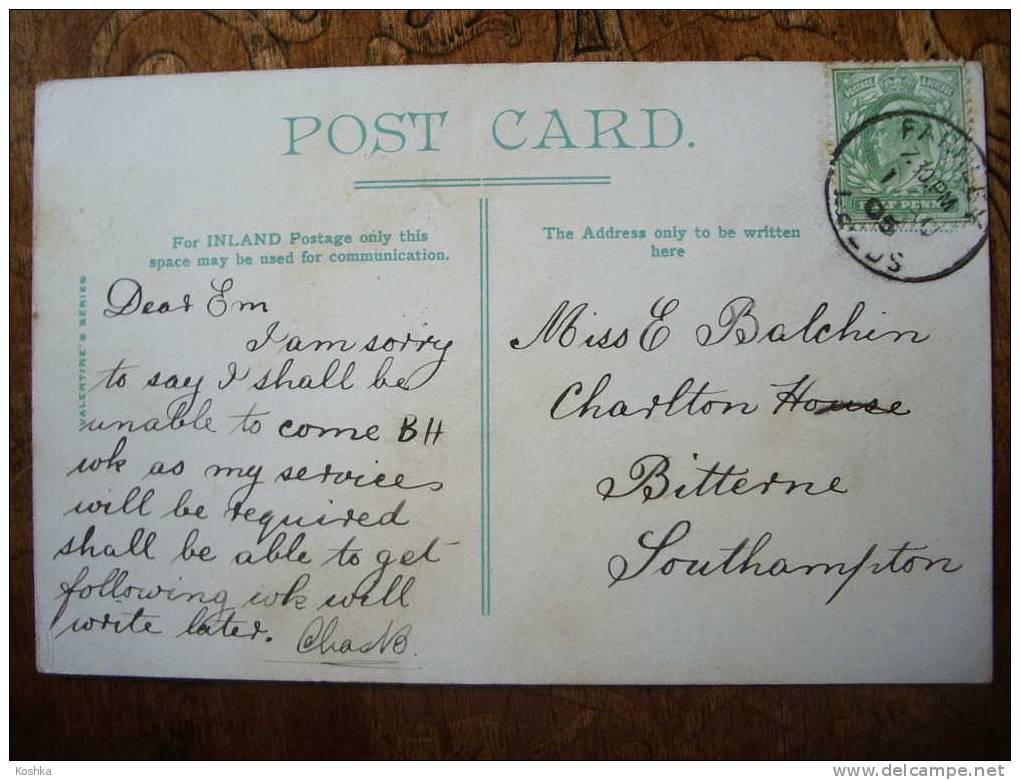 POST CARD.
For INLAND Postage only this
space may be used for communication.
The Address only to be written
here
VALENTINE'S SERIES
Dear Em
I am sorry
to say I shall be
unable to come BH
wk as my services
will be required
shall be able to get
following wk will
write later. Chas B.
Miss E Balchin
Charlton House
Bitterne
Southampton
POSTAGE REVENUE
HALF PENNY
FARNLEY
7.30PM
LEEDS
Koshka
delcampe.net